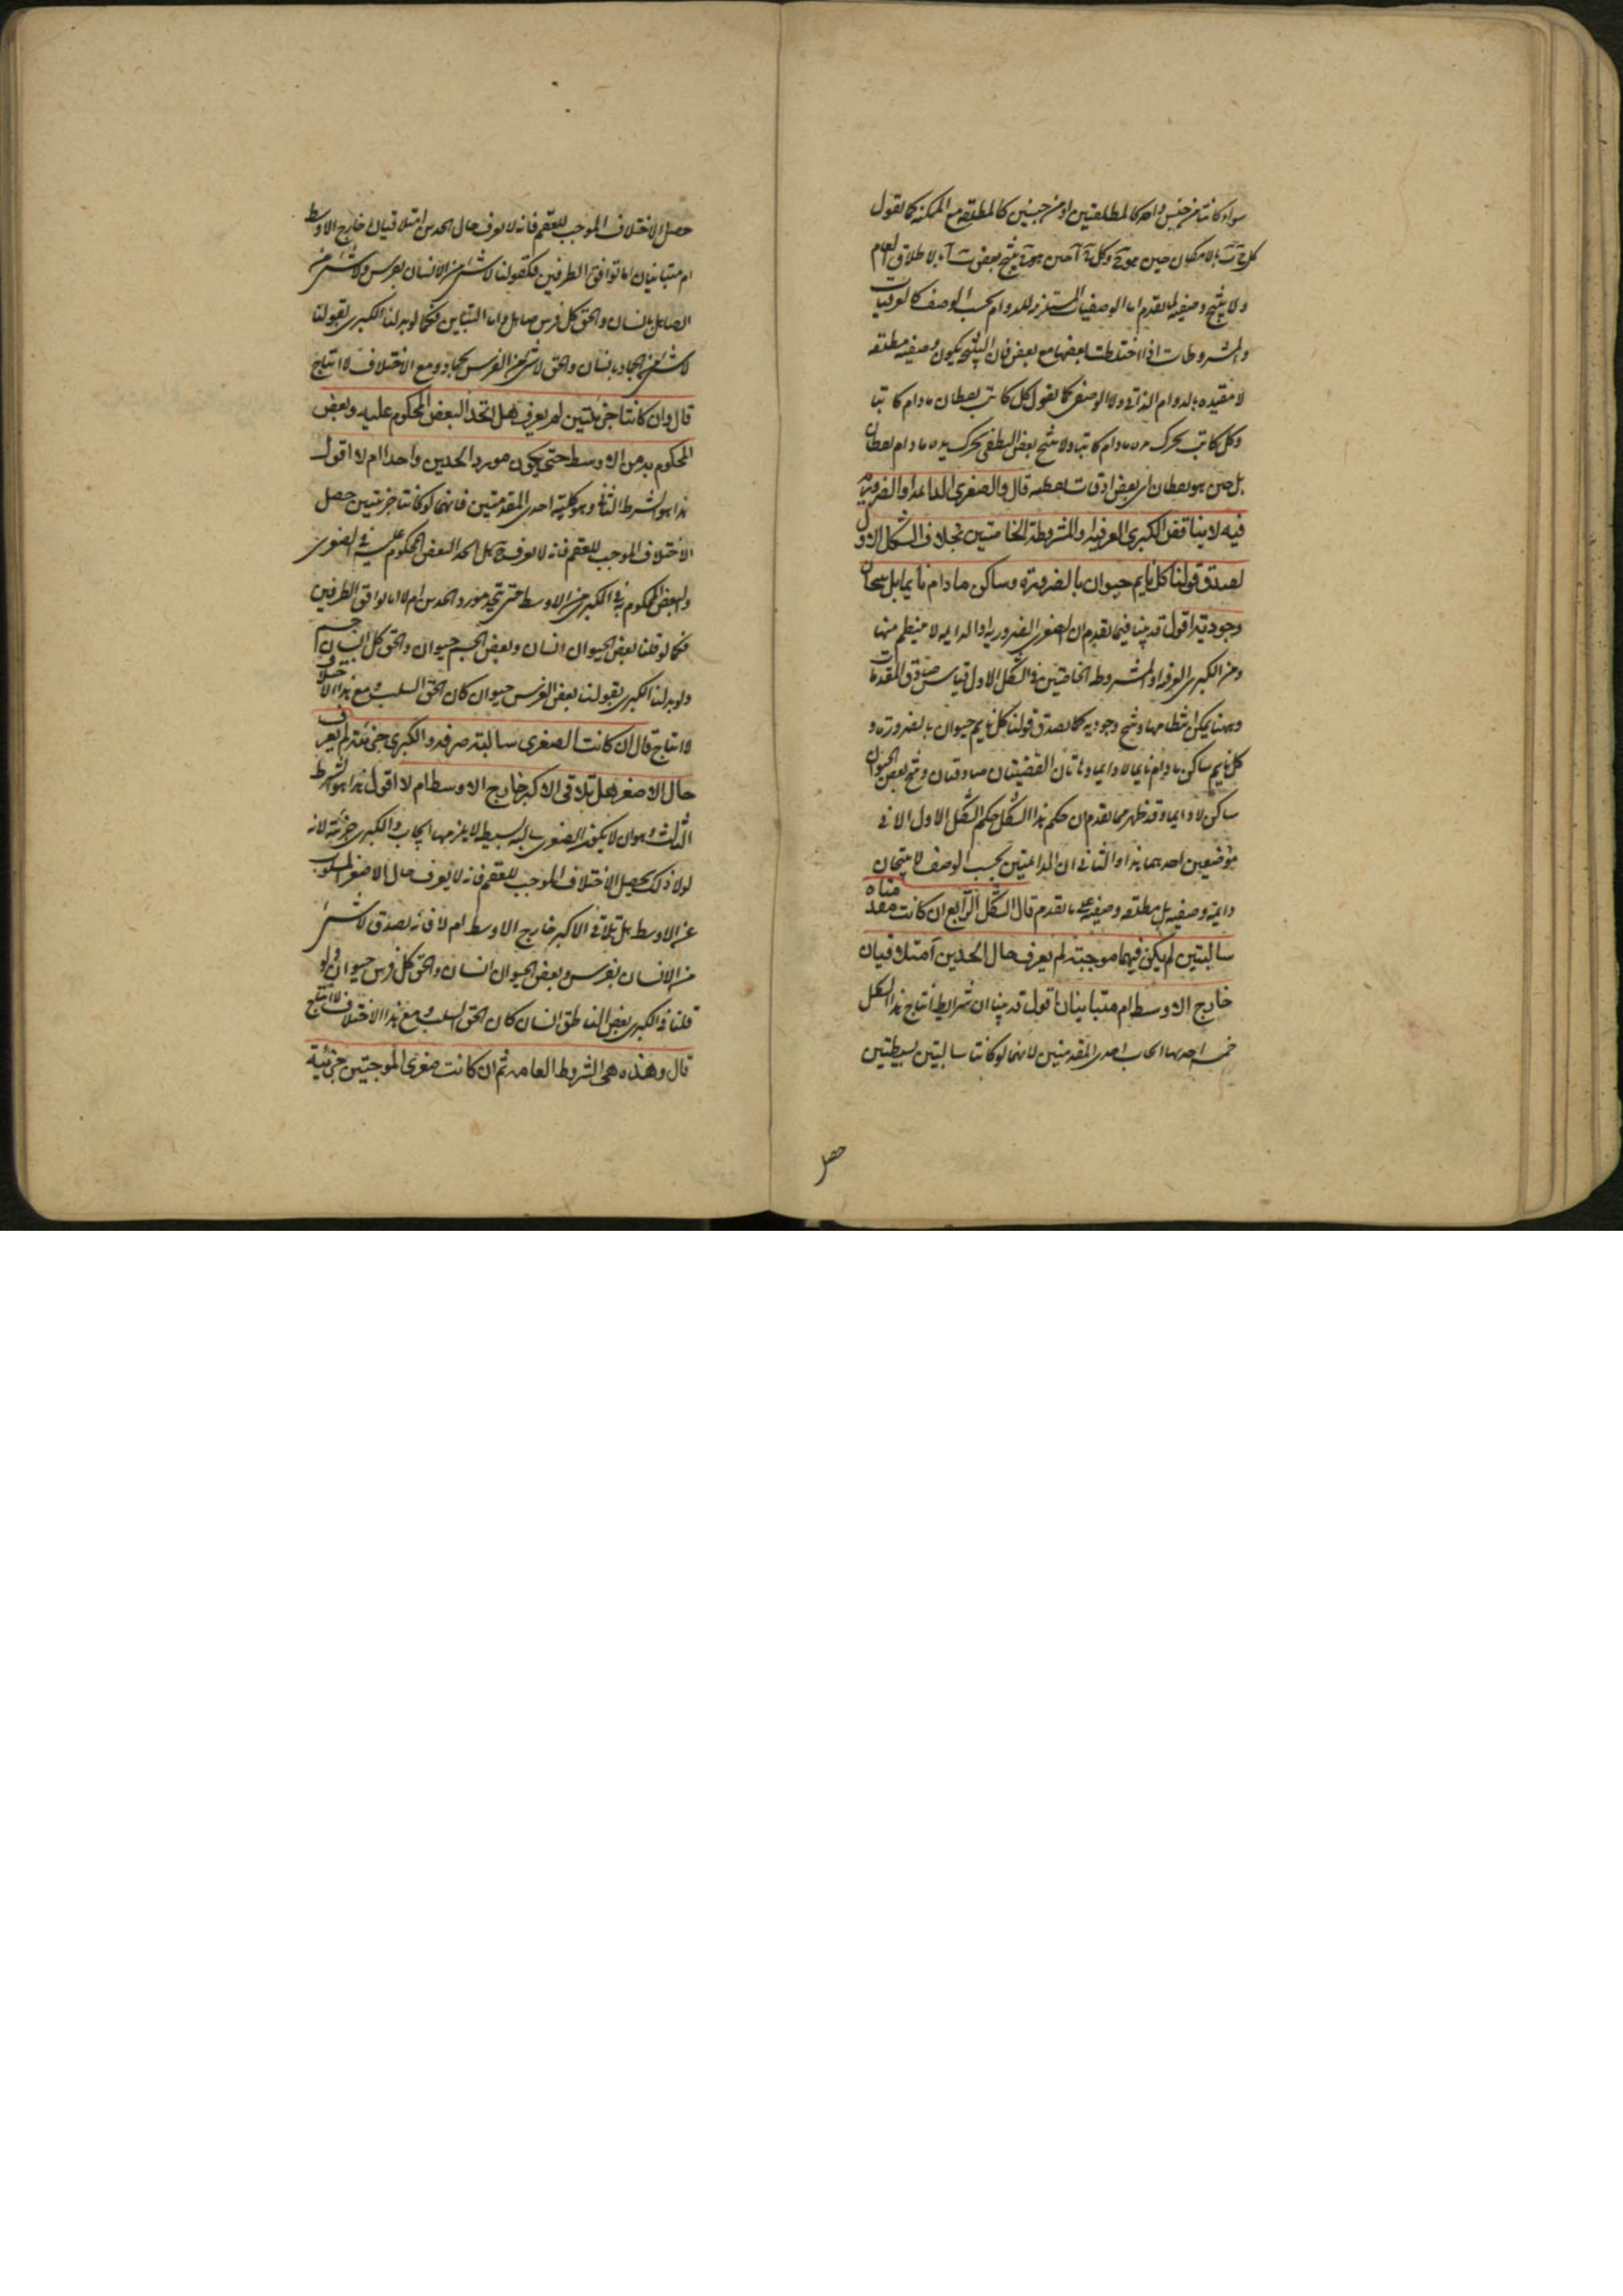 سواء كانتا من جنس واحد كالمطلقتين او من جنسين كالمطلقة مع الممكنة كما نقول
كل ج ب بالامكان حين هو ج وكل ج آ حين هو ج ينتج بعض ب آ بالاطلاق العام
ولا ينتج وصفية لما تقدم اما الوصفيات المستلزمة للدوام بحسب الوصف كالعرفيات
والمشروطات اذا اختلطت بعضها مع بعض فان النتيجة يكون وصفية مطلقة
لا مقيدة بالدوام الذاتي ولا الوصفي كما نقول كل كاتب يقظان ما دام كاتبا
وكل كاتب يحرك يده ما دام كاتبا ولا ينتج بعض اليقظى يحرك يده ما دام يقظان
بل حين هو يقظان اى بعض اوقات يقظته قال والصغرى الدائمة او الضرورية
فيه لا يناقض الكبرى العرفية او المشروطة الخاصتين بخلاف الشكل الاول
لصدق قولنا كل نايم حيوان بالضرورة وساكن ما دام نايما بل ينتجان
وجودية اقول قد بينا فيما تقدم ان الصغرى الضرورية او الدايمة لا ينتظم منها
ومن الكبرى العرفية او المشروطة الخاصتين فى الشكل الاول قياس صادق المقدمات
وههنا يمكن انتظامها وينتج وجودية كما يصدق قولنا كل نايم حيوان بالضرورة و
كل نايم ساكن ما دام نايما لا دايما وهاتان القضيتان صادقتان وينتج بعض الحيوان
ساكن لا دايما وقد ظهر مما تقدم ان حكم هذا الشكل حكم الشكل الاول الا فى
موضعين احدهما هذا والثانى ان الدائمتين بحسب الوصف لا ينتجان
دايمة وصفية بل مطلقة وصفية على ما تقدم قال الشكل الرابع ان كانت مقدمتاه
سالبتين لم يكن فيهما موجبة لم يعرف حال الحدين أمتلاقيان
خارج الاوسط ام متباينان اقول قد بينا ان شرايط انتاج هذا الشكل
خمسة احدها ايجاب احدى المقدمتين لانهما لو كانتا سالبتين بسيطتين
حصل
حصل الاختلاف الموجب للعقم فانه لا يعرف حال الحدين امتلاقيان خارج الاوسط
ام متباينان اما توافق الطرفين فكقولنا لا شئ من الانسان بفرس ولا شئ من
الصاهل بانسان والحق كل فرس صاهل واما التباين فكما لو بدلنا الكبرى بقولنا
لا شئ من الجماد بانسان والحق لا شئ من الفرس بجماد ومع الاختلاف لا انتاج
قال وان كانتا جزئيتين لم يعرف هل اتحد البعض المحكوم عليه وبعض
المحكوم به من الاوسط حتى يكون مورد الحدين واحدا ام لا اقول
هذا هو الشرط الثانى وهو كلية احدى المقدمتين فانهما لو كانتا جزئيتين حصل
الاختلاف الموجب للعقم فانه لا يعرف هل اتحد البعض المحكوم عليه فى الصغرى
والبعض المحكوم به فى الكبرى من الاوسط حتى يتحد مورد الحدين ام لا اما توافق الطرفين
فكما لو قلنا بعض الحيوان انسان وبعض الجسم حيوان والحق كل انسان جسم
ولو بدلنا الكبرى بقولنا بعض الفرس حيوان كان الحق السلب ومع هذا الاختلاف
لا انتاج قال ان كانت الصغرى سالبة صرفة والكبرى جزئية لم يعرف
حال الاصغر هل تلاقى الاكبر خارج الاوسط ام لا اقول هذا هو الشرط
الثالث وهو ان لا يكون الصغرى سالبة بسيطة لا يلزمها ايجاب والكبرى جزئية لانه
لولا ذلك يحصل الاختلاف الموجب للعقم فانه لا يعرف حال الاصغر المسلوب
عن الاوسط هل تلاقى الاكبر خارج الاوسط ام لا فانه يصدق لا شئ
من الانسان بفرس وبعض الحيوان انسان والحق كل فرس حيوان ولو
قلنا فى الكبرى بعض الناطق انسان كان الحق السلب ومع هذا الاختلاف لا انتاج
قال وهذه هى الشروط العامة ثم ان كانت صغرى الموجبتين جزئية